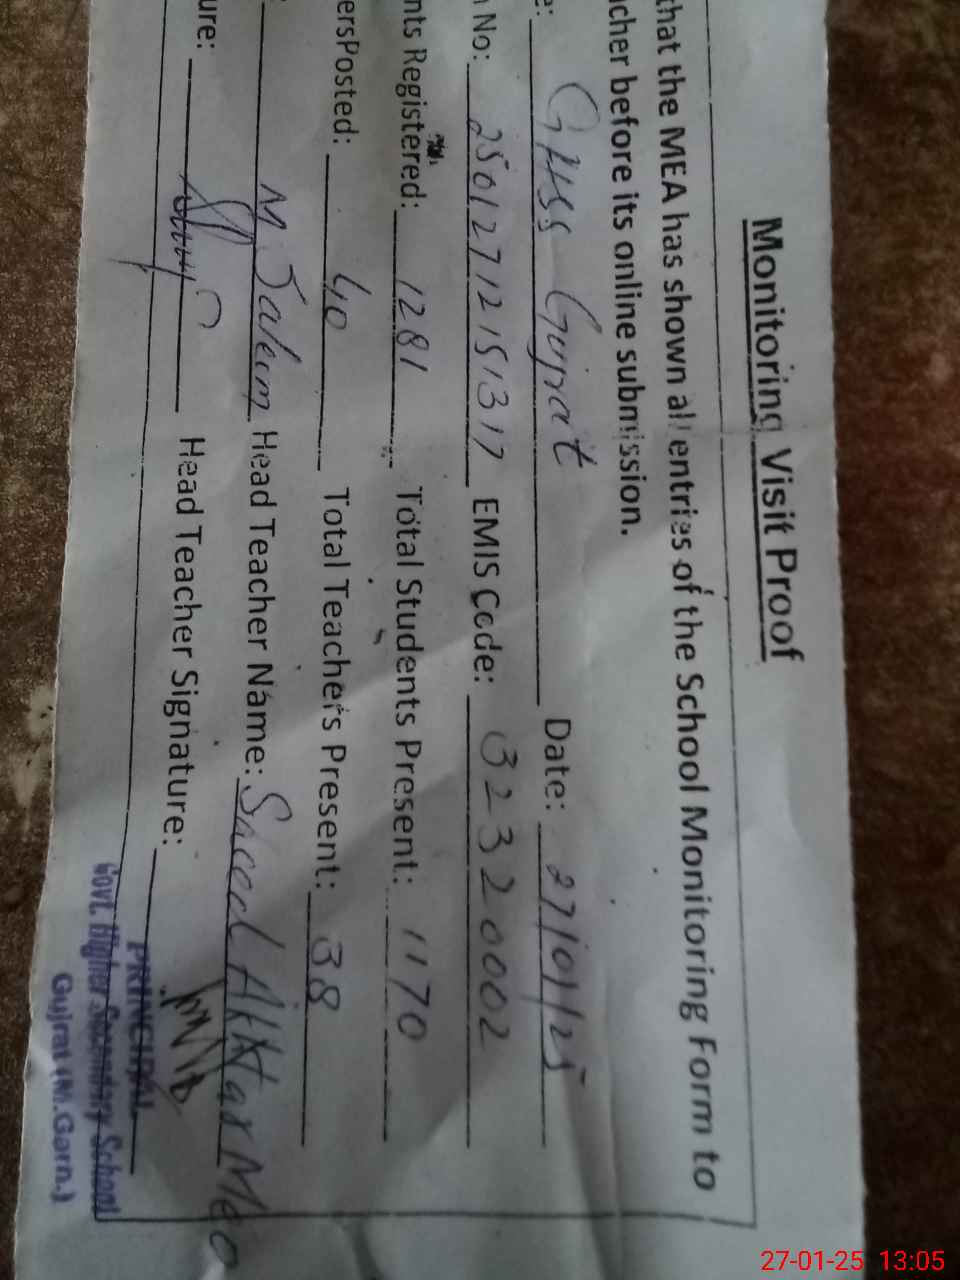 Monitoring Visit Proof
that the MEA has shown all entries of the School Monitoring Form to
cher before its online submission.
e: GHSS Gujrat Date: 27/01/25
No: 25012712151317 EMIS Code: 32320002
nts Registered: 1281 Total Students Present: 1170
ersPosted: 40 Total Teachers Present: 38
M Saleem Head Teacher Name: Saeed Akhtar Meo
ure: Head Teacher Signature:
PRINCIPAL
Govt. Higher Secondary School
Gujrat (M.Garn.)
27-01-25 13:05